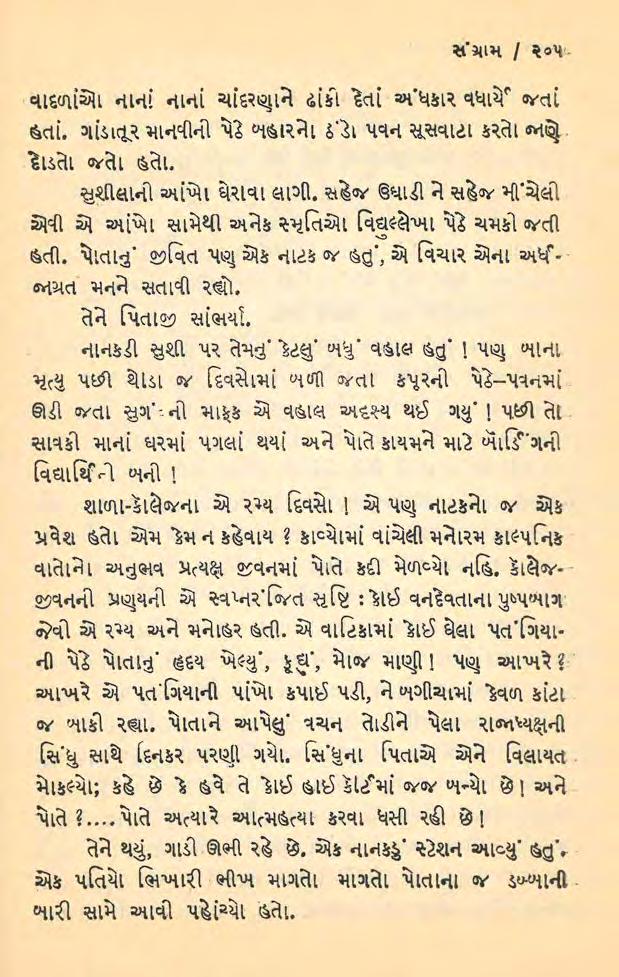 સંગ્રામ / ૨૦૫
વાદળાંઓ નાનાં નાનાં ચાંદરણાને ઢાંકી દેતાં અંધકાર વધાર્યે જતાં
હતાં. ગાંડાતૂર માનવીની પેઠે બહારનો ઠંડો પવન સૂસવાટા કરતો જાણે
દોડતો જતો હતો.
સુશીલાની આંખો ઘેરાવા લાગી. સહેજ ઉઘાડી ને સહેજ મીંચેલી
એવી એ આંખો સામેથી અનેક સ્મૃતિઓ વિદ્યુલ્લેખા પેઠે ચમકી જતી
હતી. પોતાનું જીવિત પણ એક નાટક જ હતું, એ વિચાર એના અર્ધ-
જાગ્રત મનને સતાવી રહ્યો.
તેને પિતાજી સાંભર્યા.
નાનકડી સુશી પર તેમનું કેટલું બધું વહાલ હતું ! પણ બાના
મૃત્યુ પછી થોડા જ દિવસોમાં બળી જતા કપૂરની પેઠે–પવનમાં
ઊડી જતા સુગંધની માફક એ વહાલ અદૃશ્ય થઈ ગયું ! પછી તો
સાવકી માનાં ઘરમાં પગલાં થયાં અને પોતે કાયમને માટે બૉર્ડિંગની
વિદ્યાર્થિની બની !
શાળા-કૉલેજના એ રમ્ય દિવસો ! એ પણ નાટકનો જ એક
પ્રવેશ હતો એમ કેમ ન કહેવાય ? કાવ્યોમાં વાંચેલી મનોરમ કાલ્પનિક
વાતોનો અનુભવ પ્રત્યક્ષ જીવનમાં પોતે કદી મેળવ્યો નહિ. કૉલેજ-
જીવનની પ્રણયની એ સ્વપ્નરંજિત સૃષ્ટિ : કોઈ વનદેવતાના પુષ્પબાગ
જેવી એ રમ્ય અને મનોહર હતી. એ વાટિકામાં કોઈ ઘેલા પતંગિયા-
ની પેઠે પોતાનું હૃદય ખેલ્યું, કૂદ્યું, મોજ માણી! પણ આખરે ?
આખરે એ પતંગિયાની પાંખો કપાઈ પડી, ને બગીચામાં કેવળ કાંટા
જ બાકી રહ્યા. પોતાને આપેલું વચન તોડીને પેલા રાજાધ્યક્ષની
સિંધુ સાથે દિનકર પરણી ગયો. સિંધુના પિતાએ એને વિલાયત
મોકલ્યો; કહે છે કે હવે તે કોઈ હાઈ કૉર્ટમાં જજ બન્યો છે! અને
પોતે ?.... પોતે અત્યારે આત્મહત્યા કરવા ધસી રહી છે!
તેને થયું, ગાડી ઊભી રહે છે. એક નાનકડું સ્ટેશન આવ્યું હતું.
એક પતિયો ભિખારી ભીખ માગતો માગતો પોતાના જ ડબ્બાની
બારી સામે આવી પહોંચ્યો હતો.